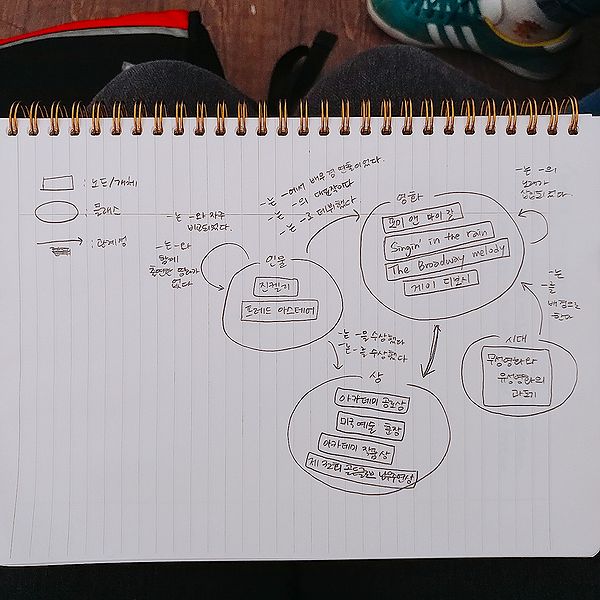 : 노드/개체
: 클래스
: 관계성
-는 -와 자주
비교되었다.
-는 -와
함께
출연한 영화가
없다
-는 -에서 배우 겸 연출이었다.
-는 -의 대표작이다
-는 -로 데뷔했다
인물
진켈리
프레드 아스테어
영화
포미 앤 마이 갈
Singin' in the rain
The Broadway melody
게이 디보시
-는 -의
노래가
삽입되었다.
-는
-를
배경으로
한다
시대
무성영화와
유성영화의
과도기
-는 -을 수상했다
-는 -를 수상했다
상
아카데미 공로상
미국 예술 훈장
아카데미 작품상
제 32회 골든글로브 남우주연상